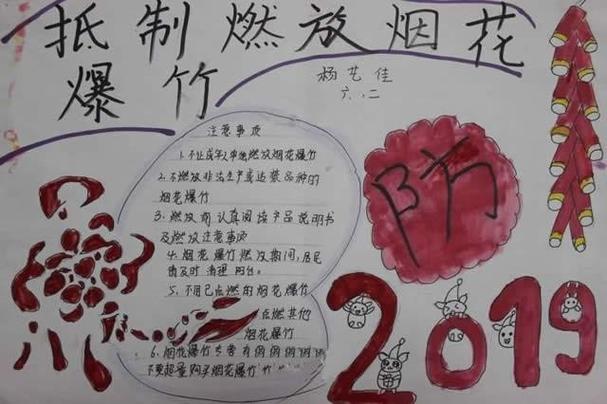 抵制燃放烟花
爆竹
杨艺佳
六.二
注意事项
1.不让成年人单独燃放烟花爆竹
2.不燃放非法生产或达禁品种的
烟花爆竹
3.燃放前认真阅读产品说明书
及燃放注意事项
4.烟花爆竹燃放期间,居民
请及时清理阳台。
5.不用已点燃的烟花爆竹
点燃其他
烟花爆竹
6.烟花爆竹
不要超量购买烟花爆竹
防
2019